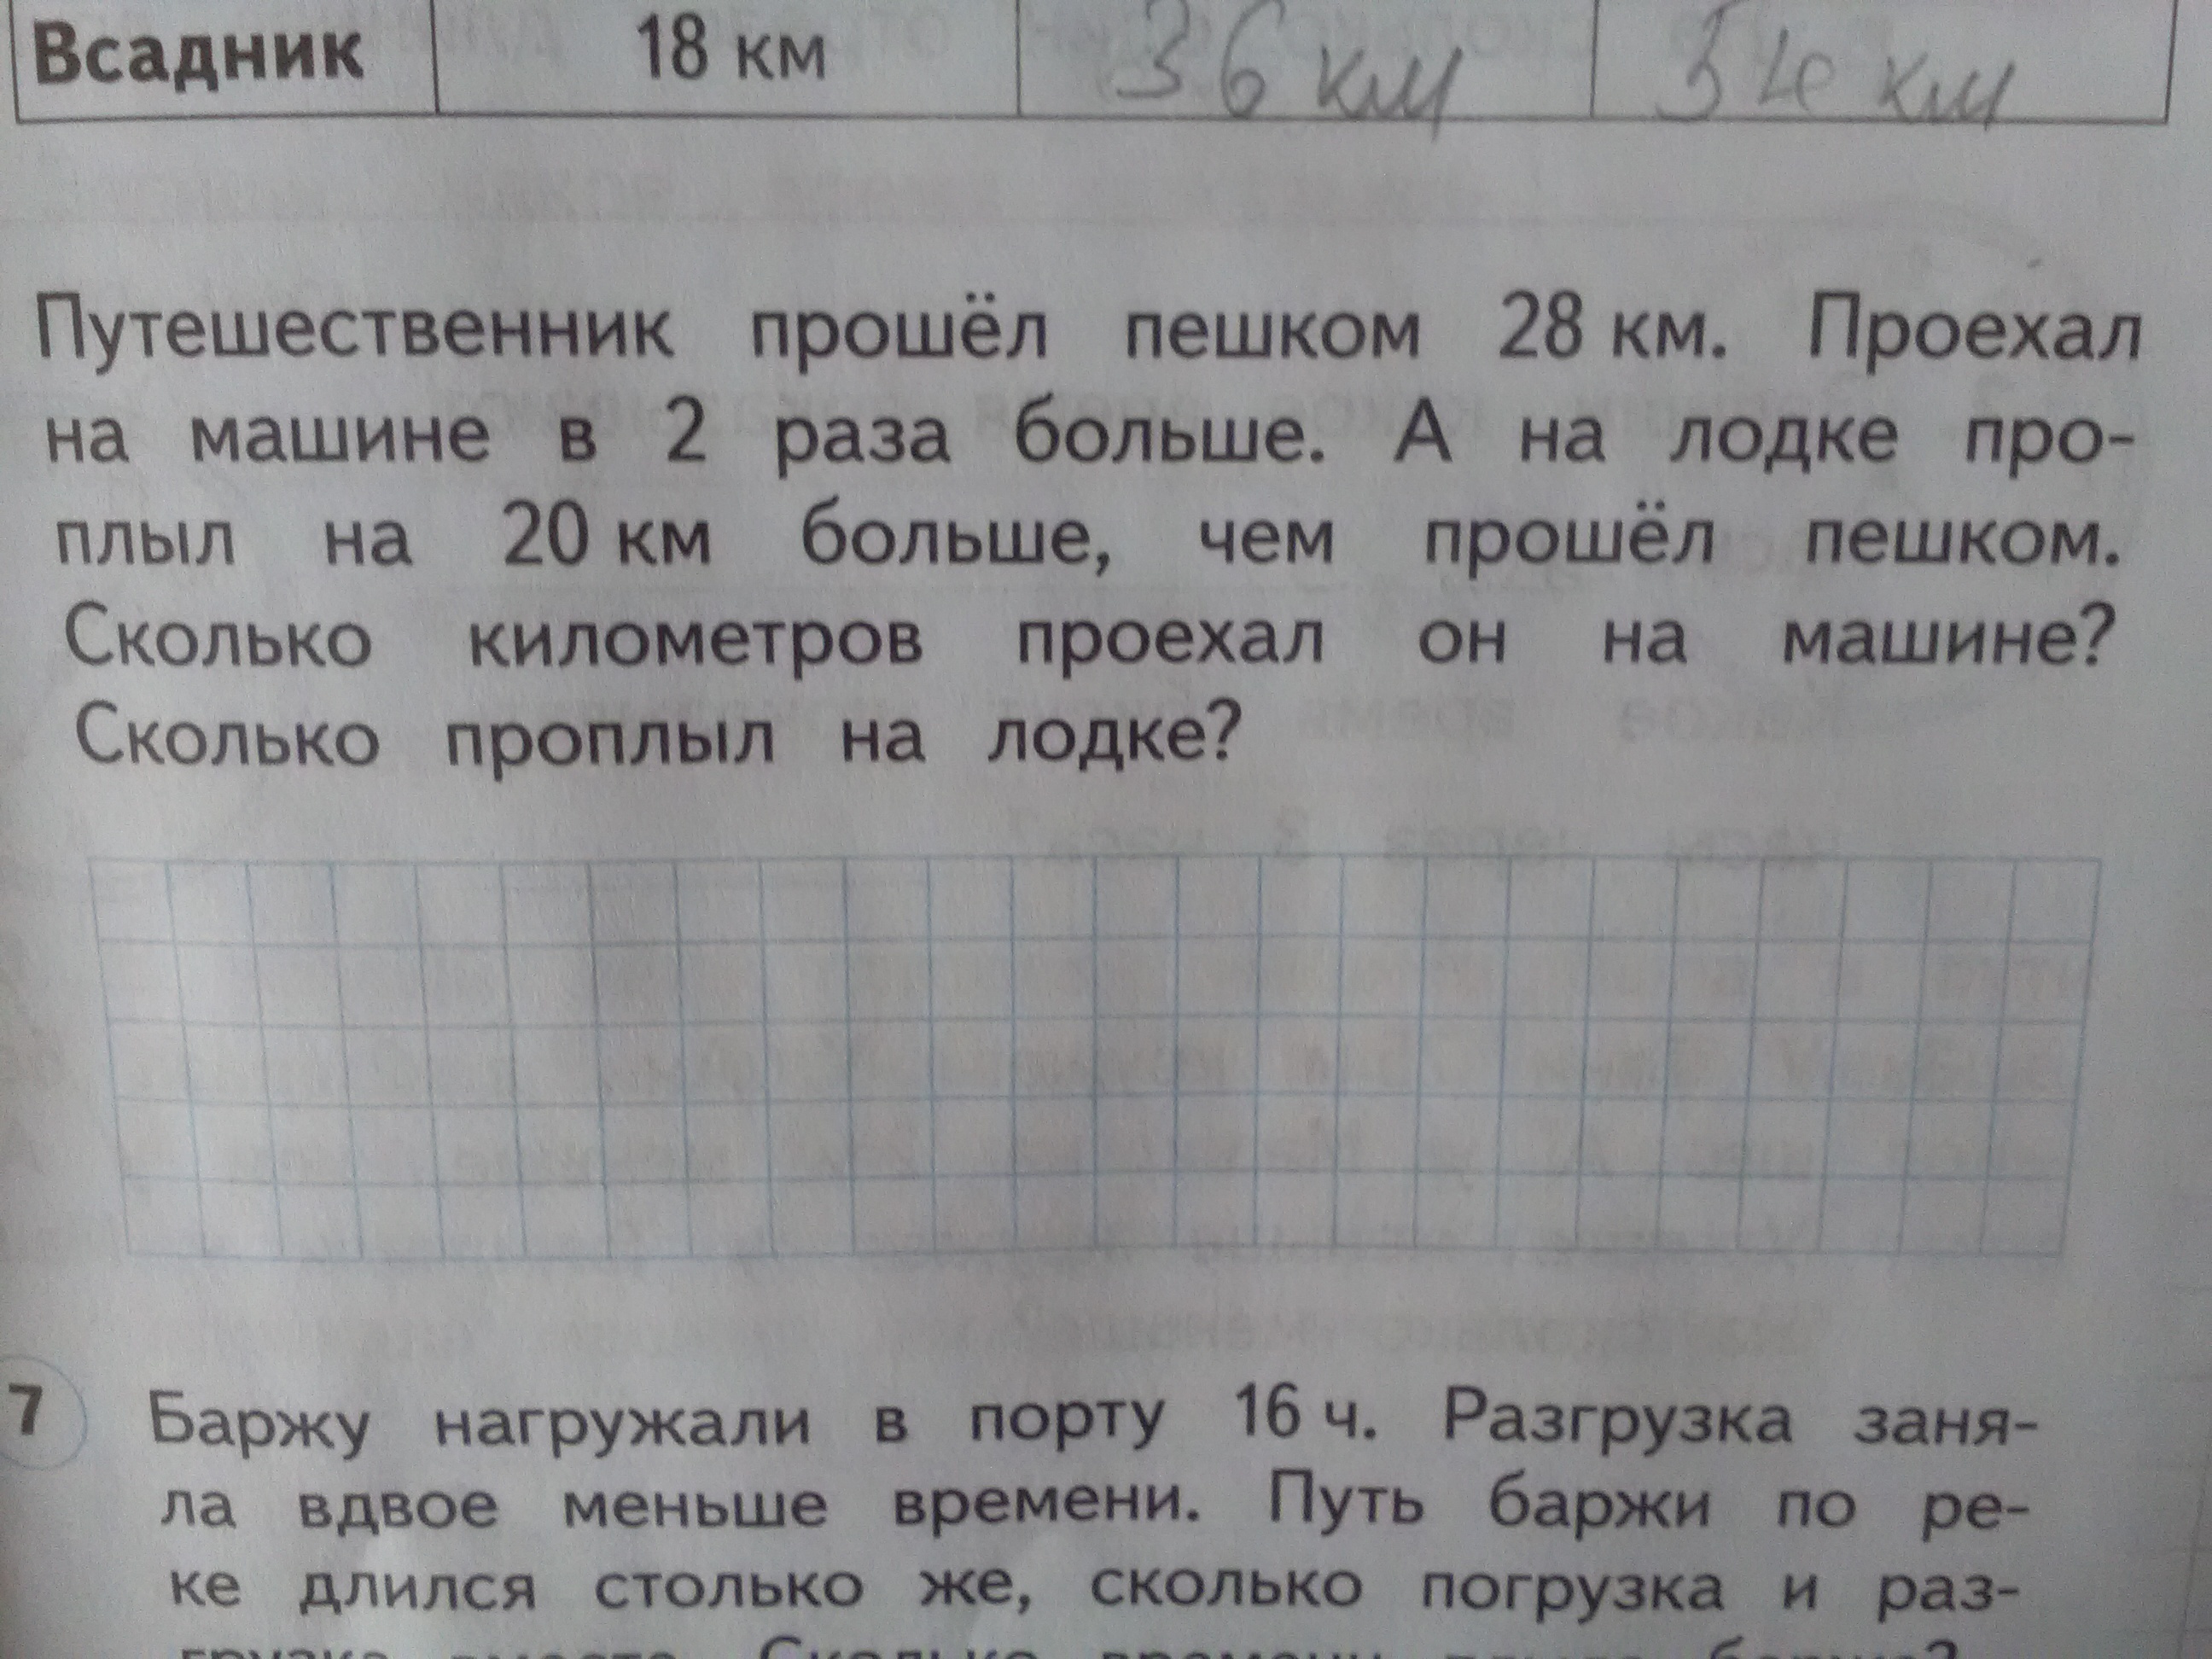 Всадник 18 км 36 км 54 км
Путешественник прошёл пешком 28 км. Проехал
на машине в 2 раза больше. А на лодке про-
плыл на 20 км больше, чем прошёл пешком.
Сколько километров проехал он на машине?
Сколько проплыл на лодке?
7 Баржу нагружали в порту 16 ч. Разгрузка заня-
ла вдвое меньше времени. Путь баржи по ре-
ке длился столько же, сколько погрузка и раз-
грузка вместе. Сколько времени баржи?